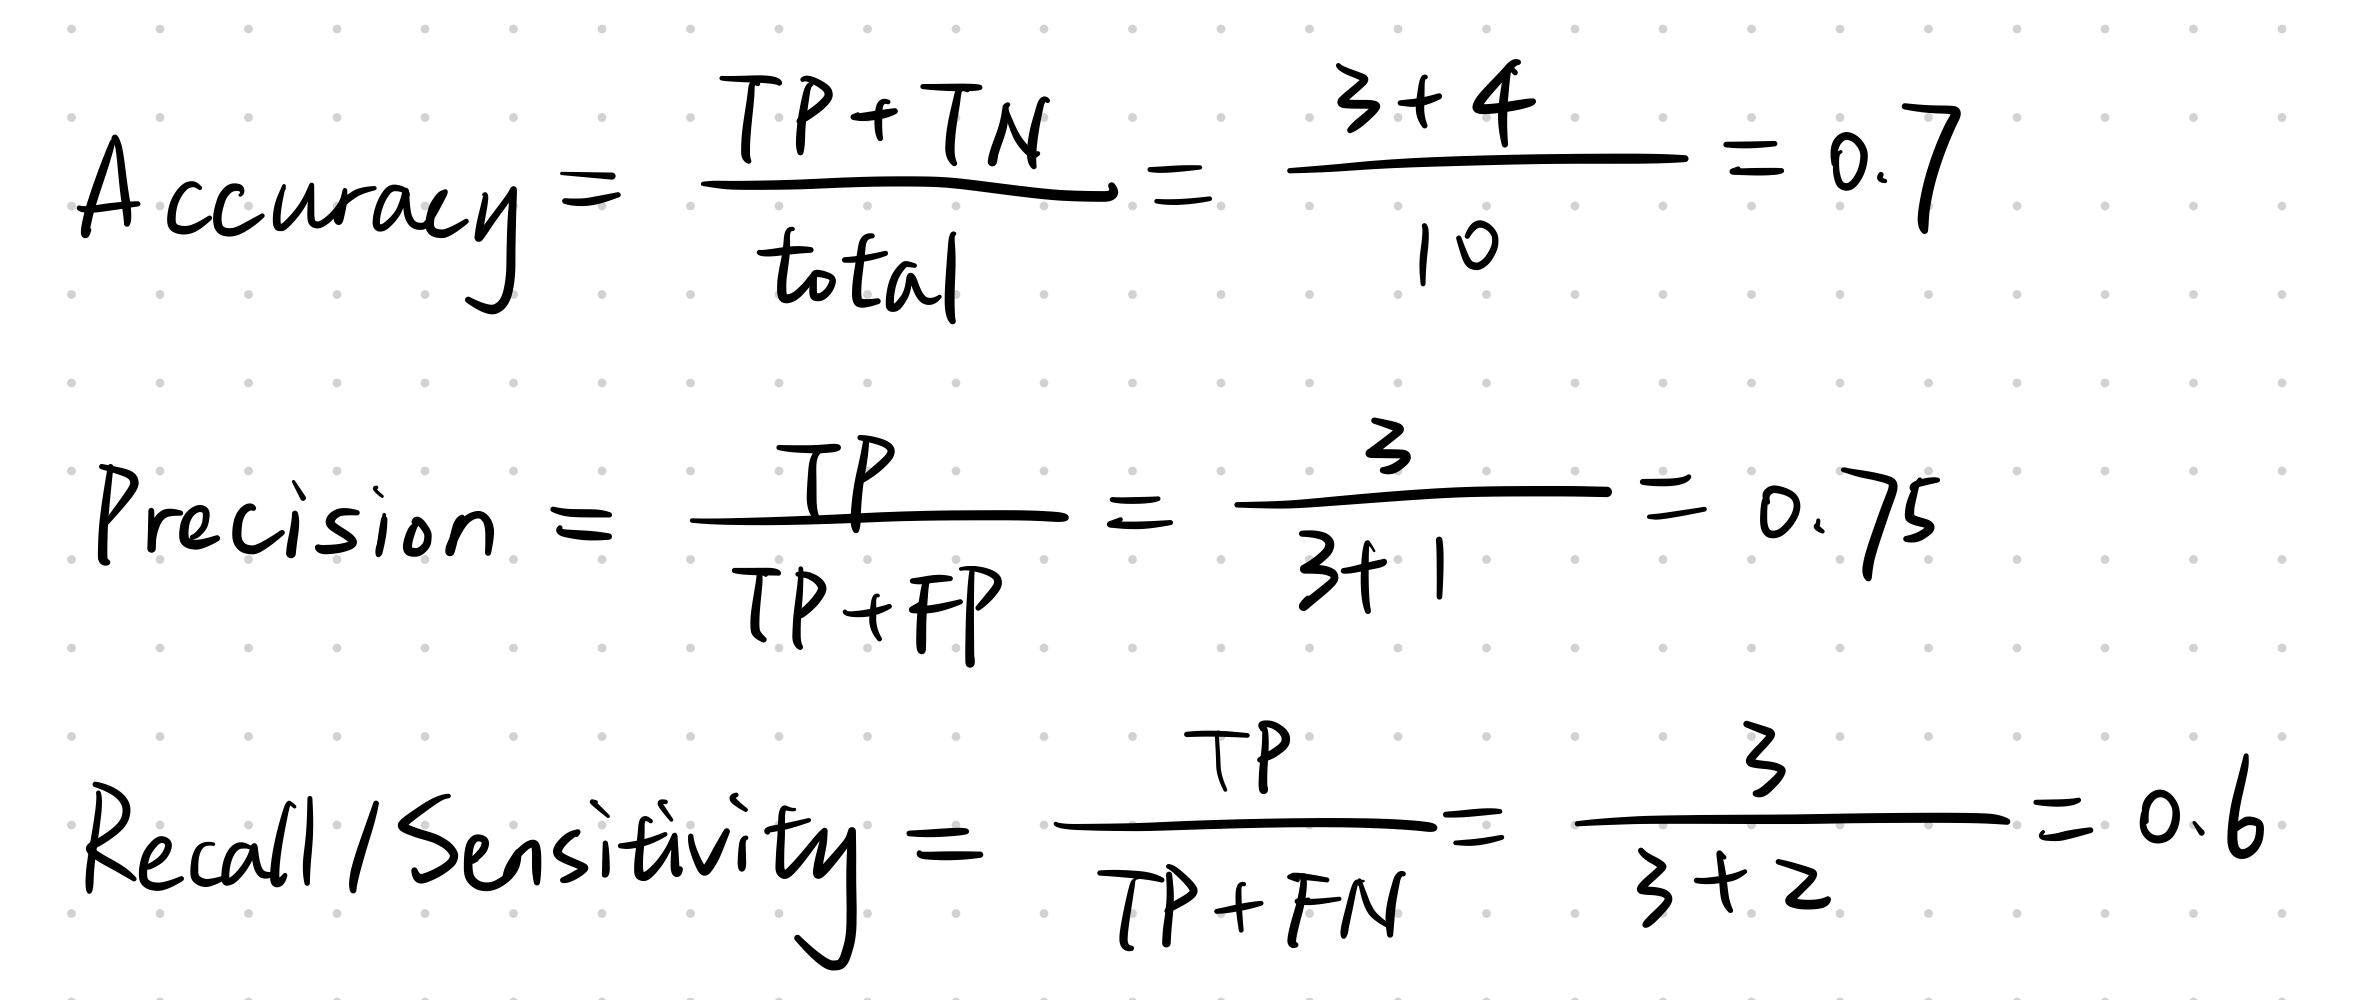 Accuracy = TP+TN / total = 3+4 / 10 = 0.7
Precision = TP / TP+FP = 3 / 3+1 = 0.75
Recall/Sensitivity = TP / TP+FN = 3 / 3+2 = 0.6